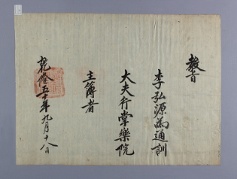 教旨
李弘源為通訓
大夫行掌樂院
主簿者
乾隆五十年九月十八日